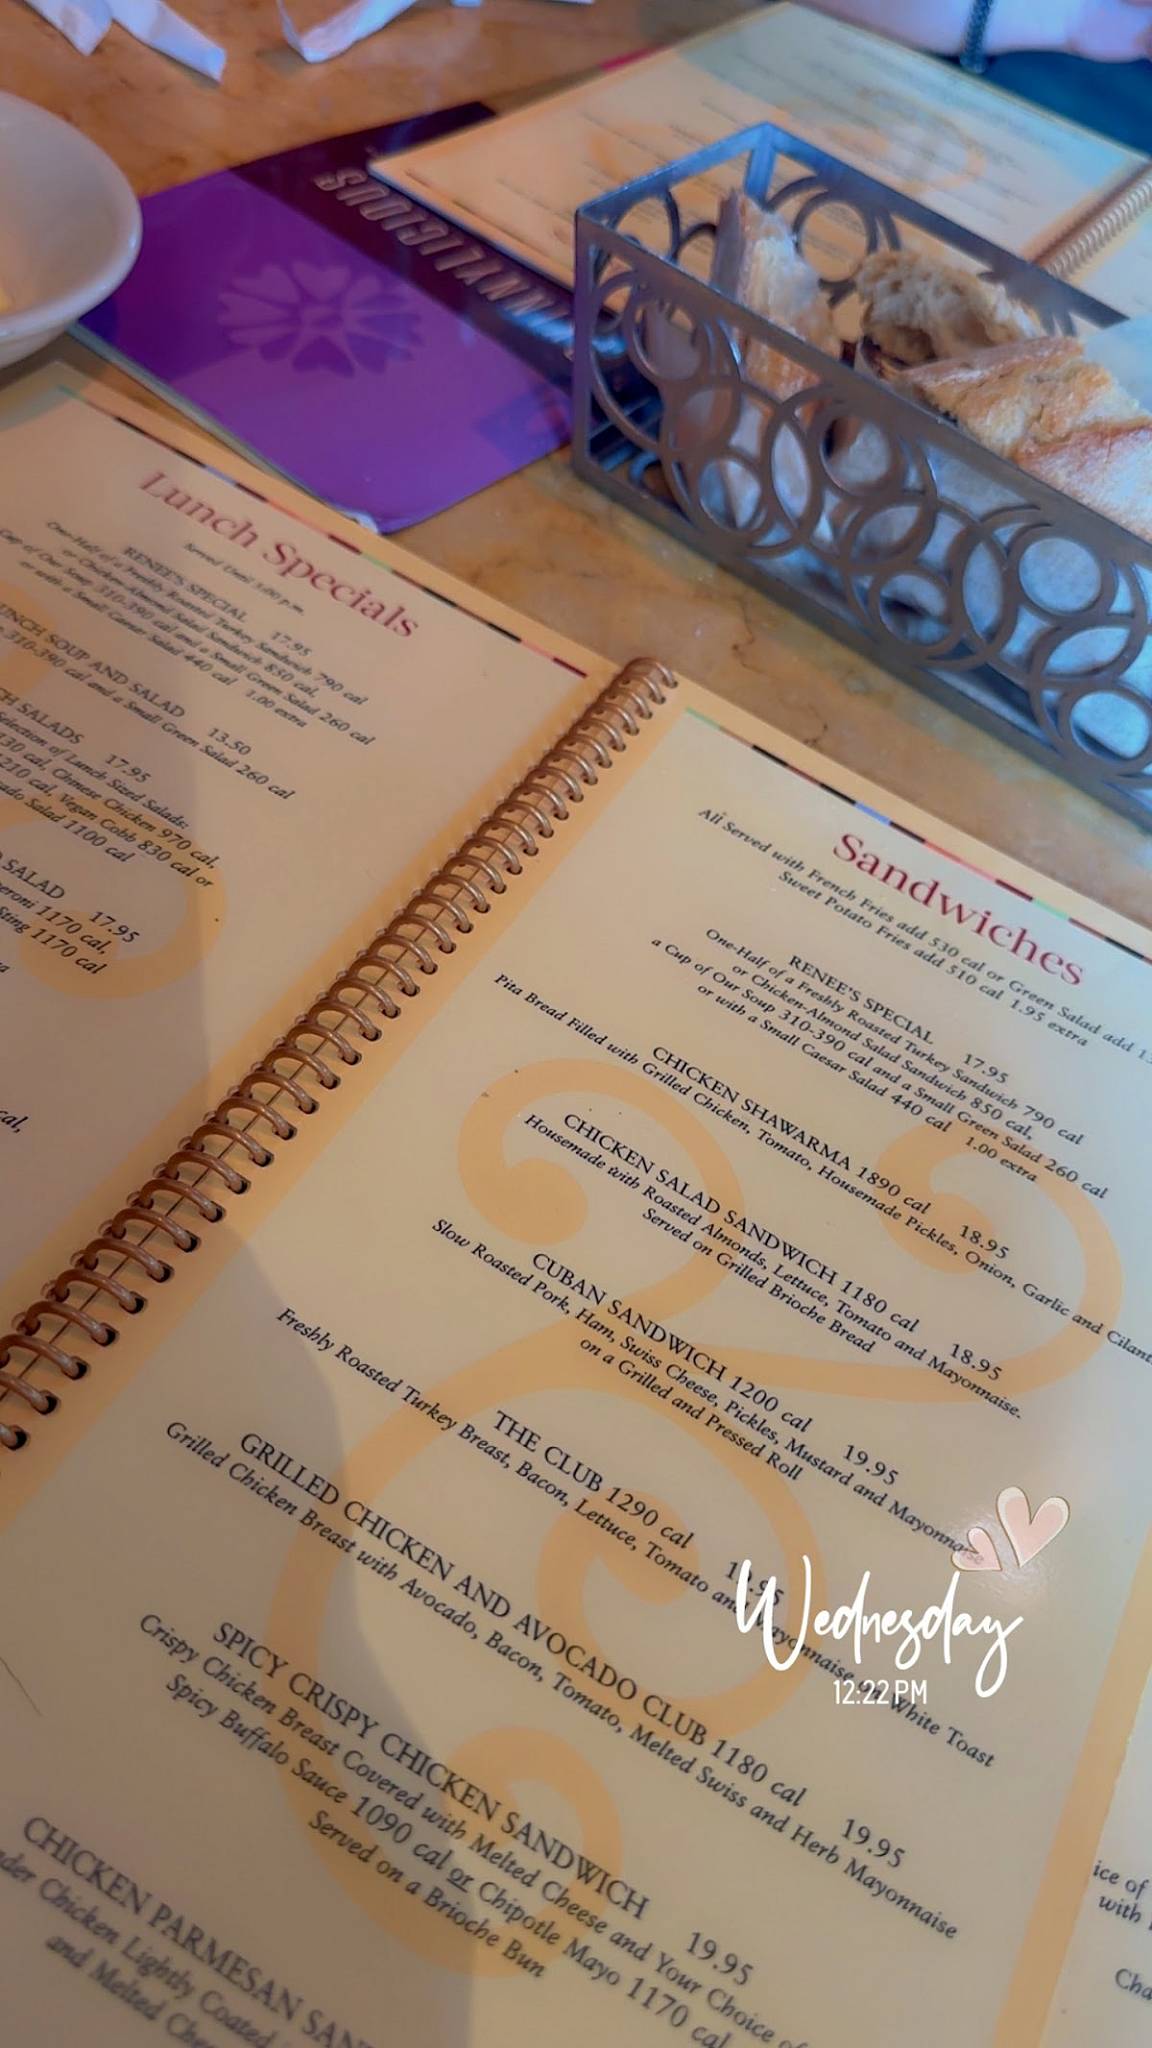 SKINNYLICIOUS
Lunch Specials
Served Until 5:00 p.m.
RENEE'S SPECIAL 17.95
One-Half of a Freshly Roasted Turkey Sandwich 790 cal
or Chicken-Almond Salad Sandwich 850 cal,
Cup of Our Soup 310-390 cal and a Small Green Salad 260 cal
or with a Small Caesar Salad 440 cal 1.00 extra
LUNCH SOUP AND SALAD 13.50
310-390 cal and a Small Green Salad 260 cal
SALADS 17.95
Selection of Lunch Sized Salads:
cal, Chinese Chicken 970 cal,
1210 cal, Vegan Cobb 830 cal or
Salad 1100 cal
SALAD 17.95
1170 cal,
Sting 1170 cal
cal,
Sandwiches
All Served with French Fries add 530 cal or Green Salad add
Sweet Potato Fries add 510 cal 1.95 extra
RENEE'S SPECIAL 17.95
One-Half of a Freshly Roasted Turkey Sandwich 790 cal
or Chicken-Almond Salad Sandwich 850 cal,
a Cup of Our Soup 310-390 cal and a Small Green Salad 260 cal
or with a Small Caesar Salad 440 cal 1.00 extra
CHICKEN SHAWARMA 1890 cal 18.95
Pita Bread Filled with Grilled Chicken, Tomato, Housemade Pickles, Onion, Garlic and Cilant
CHICKEN SALAD SANDWICH 1180 cal 18.95
Housemade with Roasted Almonds, Lettuce, Tomato and Mayonnaise.
Served on Grilled Brioche Bread
CUBAN SANDWICH 1200 cal 19.95
Slow Roasted Pork, Ham, Swiss Cheese, Pickles, Mustard and Mayonnaise
on a Grilled and Pressed Roll
THE CLUB 1290 cal 19.95
Freshly Roasted Turkey Breast, Bacon, Lettuce, Tomato and Mayonnaise on White Toast
GRILLED CHICKEN AND AVOCADO CLUB 1180 cal 19.95
Grilled Chicken Breast with Avocado, Bacon, Tomato, Melted Swiss and Herb Mayonnaise
SPICY CRISPY CHICKEN SANDWICH 19.95
Crispy Chicken Breast Covered with Melted Cheese and Your Choice of
Spicy Buffalo Sauce 1090 cal or Chipotle Mayo 1170 cal
Served on a Brioche Bun
CHICKEN PARMESAN SAN
Chicken Lightly Coated
and Melted Che
Wednesday
12:22 PM
ice of
with
Cha